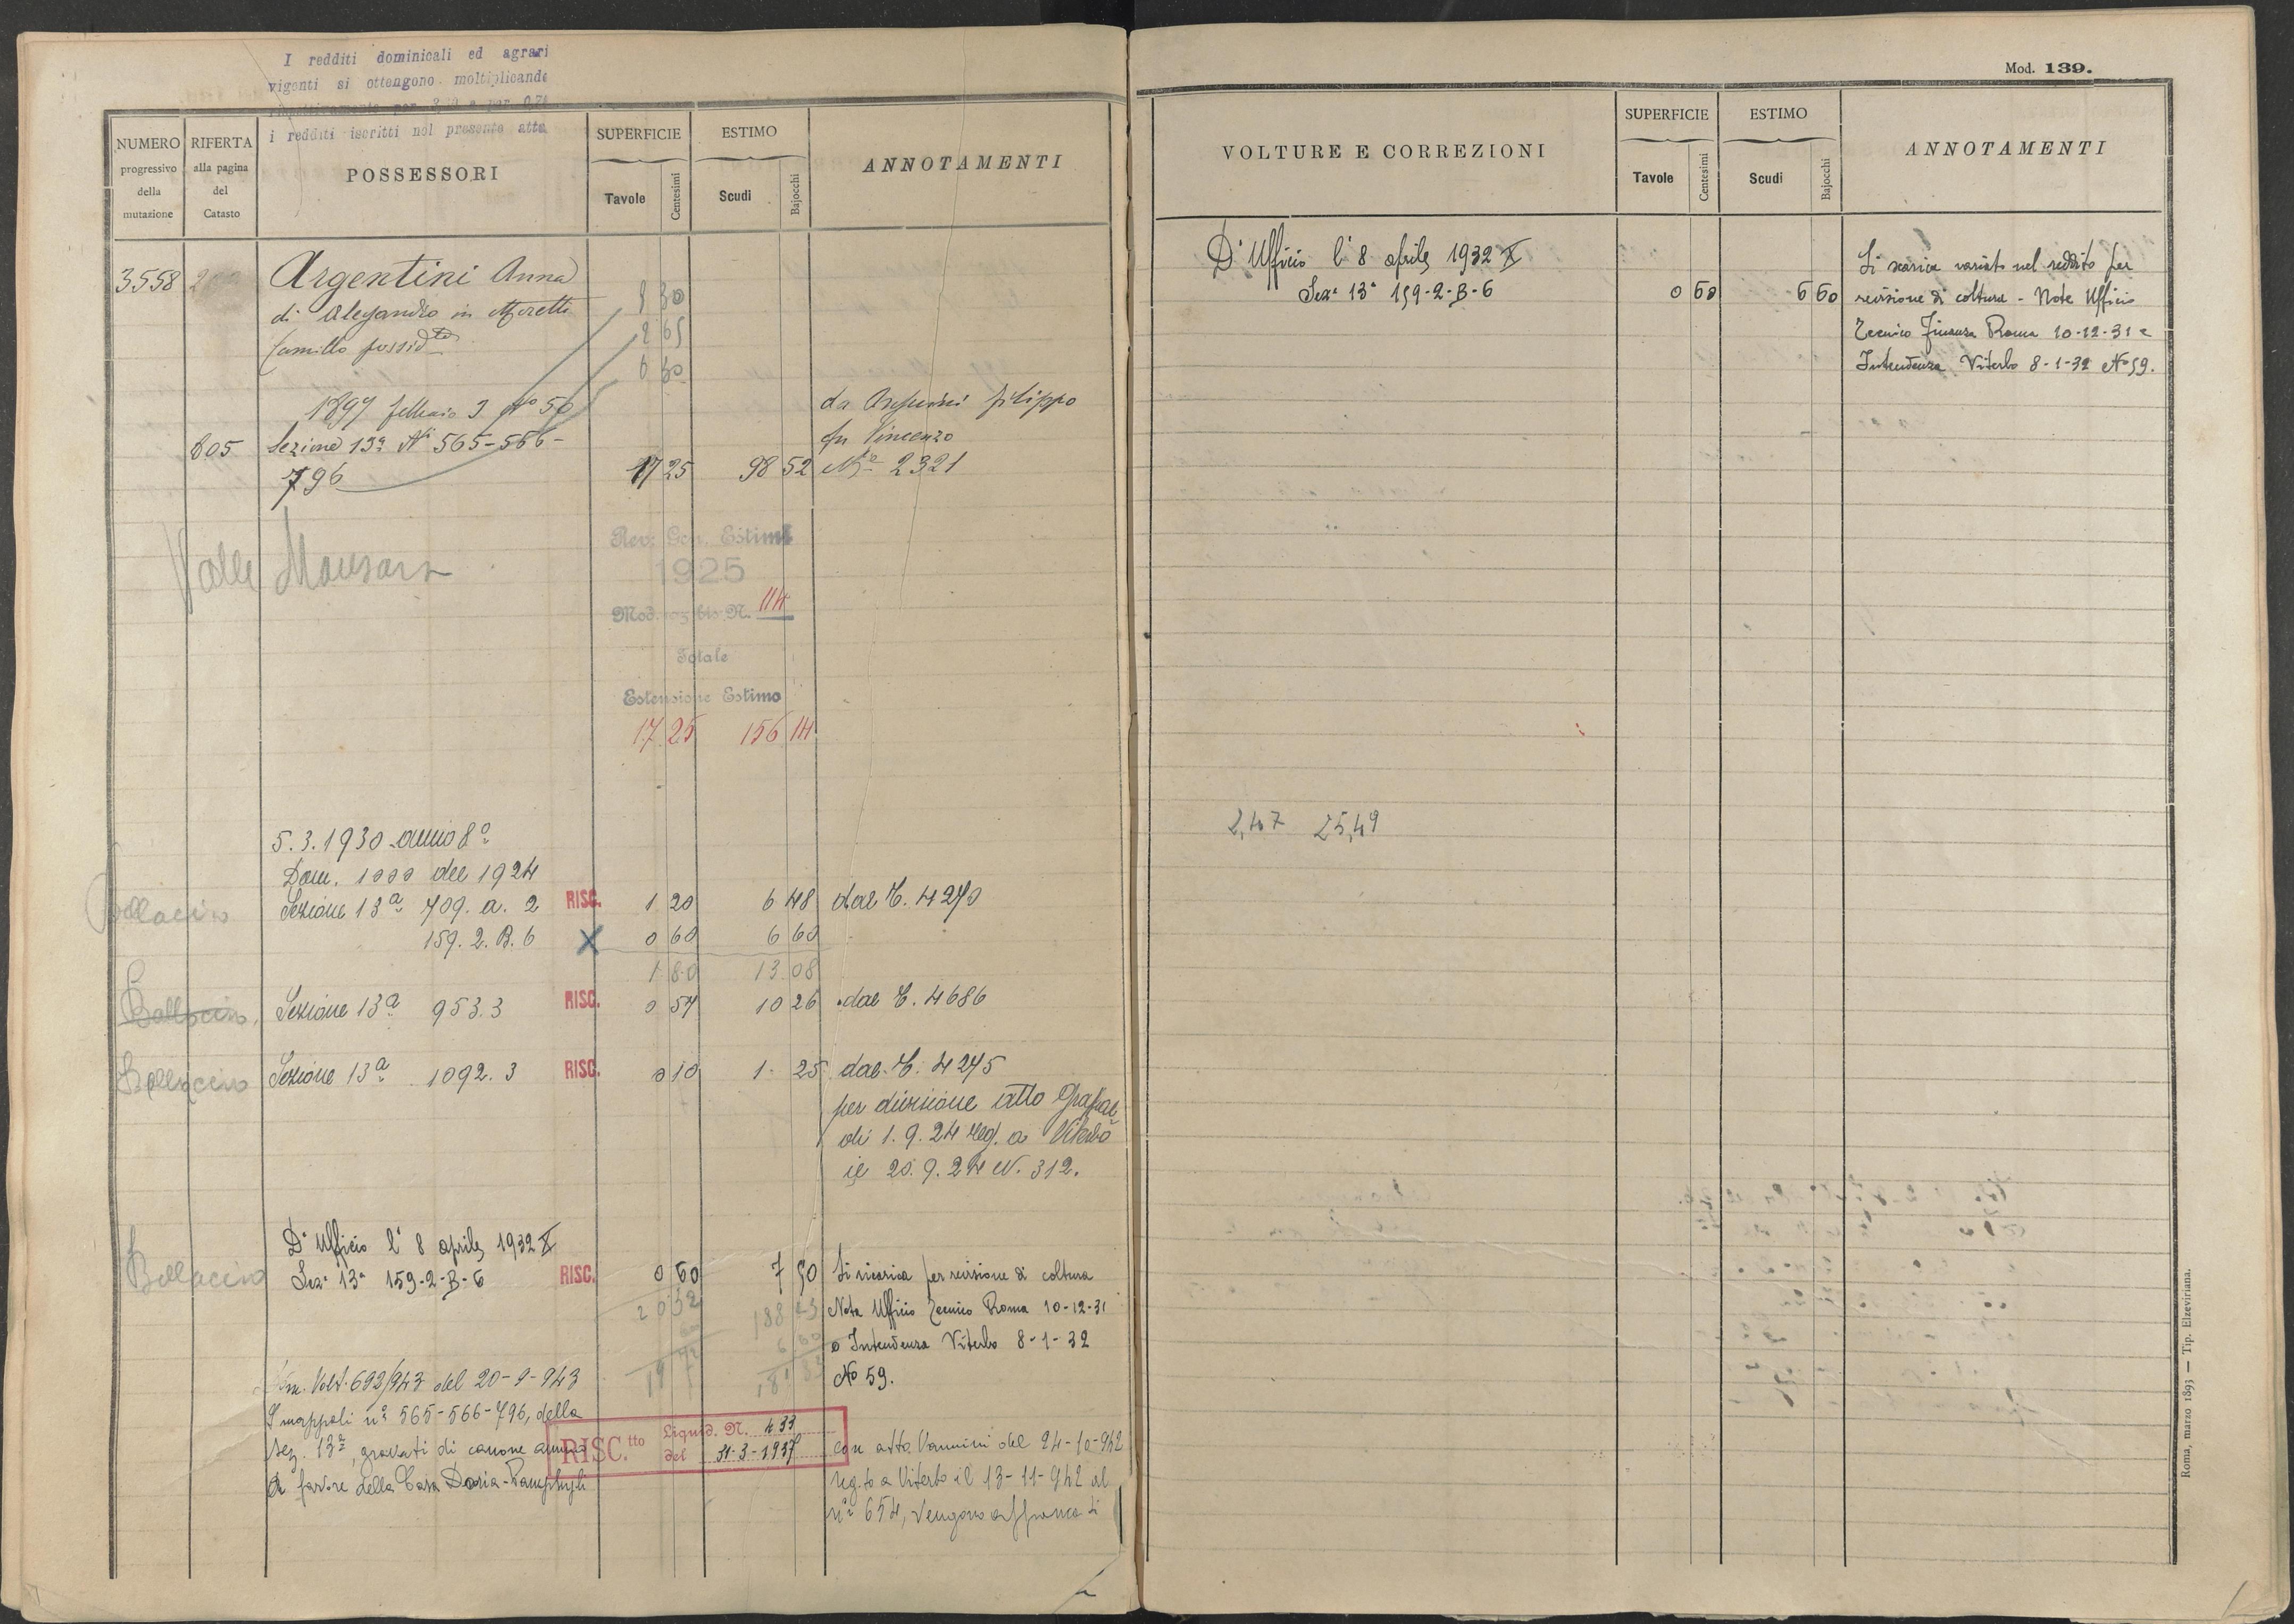 I redditi dominicali ed agrari
vigenti si ottengono moltiplicando
i redditi iscritti nel presente atto
NUMERO progressivo della mutazione
RIFERTA alla pagina del Catasto
POSSESSORI
SUPERFICIE
Tavole Centesimi
ESTIMO
Scudi Bajocchi
ANNOTAMENTI
3558 Argentini Anna
di Alessandro in Moretti
Camillo possid.te
8 30
2 65
6 30
1897 febbraio 3 No 50
da Argentini Filippo
605 Sezione 13a Ni 565-566-
fu Vincenzo
796 17 25 98 52 2321
Valle
Rev: Gen. Estimi
1925
Mod. 103 bis N. 114
Totale
Estensione Estimo
17 25 156 14
5.3.1930 anno 8o
Dom. 1000 del 1924
Bollaccino Sezione 13a 709. a. 2 RISC. 1 20 6 48 dal C. 4270
159. 2. B. 6 X 0 60 6 60
1 80 13 08
Bollaccino Sezione 13a 953.3 RISC. 0 57 10 26 dal C. 4686
Bollaccino Sezione 13a 1092.3 RISC. 0 10 1 25 dal C. 4275
per divisione atto
di 1.9.24 reg. a Viterbo
il 20.9.24 N. 312.
D'Ufficio lì 8 aprile 1932 X
Bollaccino Seza 13a 159-2-B-6 RISC. 0 60 7 50 Si ricarica per revisione di coltura
20 32 188 23 Nota Ufficio Tecnico Roma 10-12-31
60 6 60 e Intendenza Viterbo 8-1-32
19 72 181 No 59.
Dom. Volt. 692/943 del 20-9-943
I mappali ni 565-566-796, della
Sez. 13a, gravati di canone annuo
a favore della Casa Doria-Pamphyli
RISC.tto Liquid. N. 433
del 31-3-1937
con atto Vannini del 24-10-942
reg.to a Viterbo il 13-11-942 al
no 654, vengono affrancati
Mod. 139.
VOLTURE E CORREZIONI
SUPERFICIE
Tavole Centesimi
ESTIMO
Scudi Bajocchi
ANNOTAMENTI
D'Ufficio lì 8 aprile 1932 X
Seza 13a 159-2-B-6 0 60 6 60
Si scarica variato nel reddito per
revisione di coltura - Note Ufficio
Tecnico Finanza Roma 10-12-31 e
Intendenza Viterbo 8-1-32 No 59.
2,47 25,49
Roma, marzo 1893 — Tip. Elzeviriana.